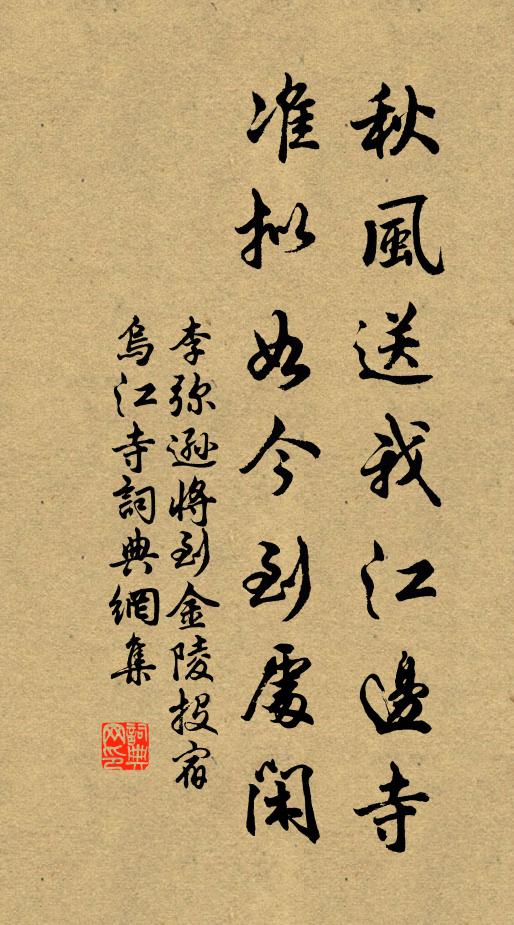 秋風送我江邊寺
准擬如今到處閑
李弥遜將到金陵投宿
烏江寺詞典網集
詞典網印